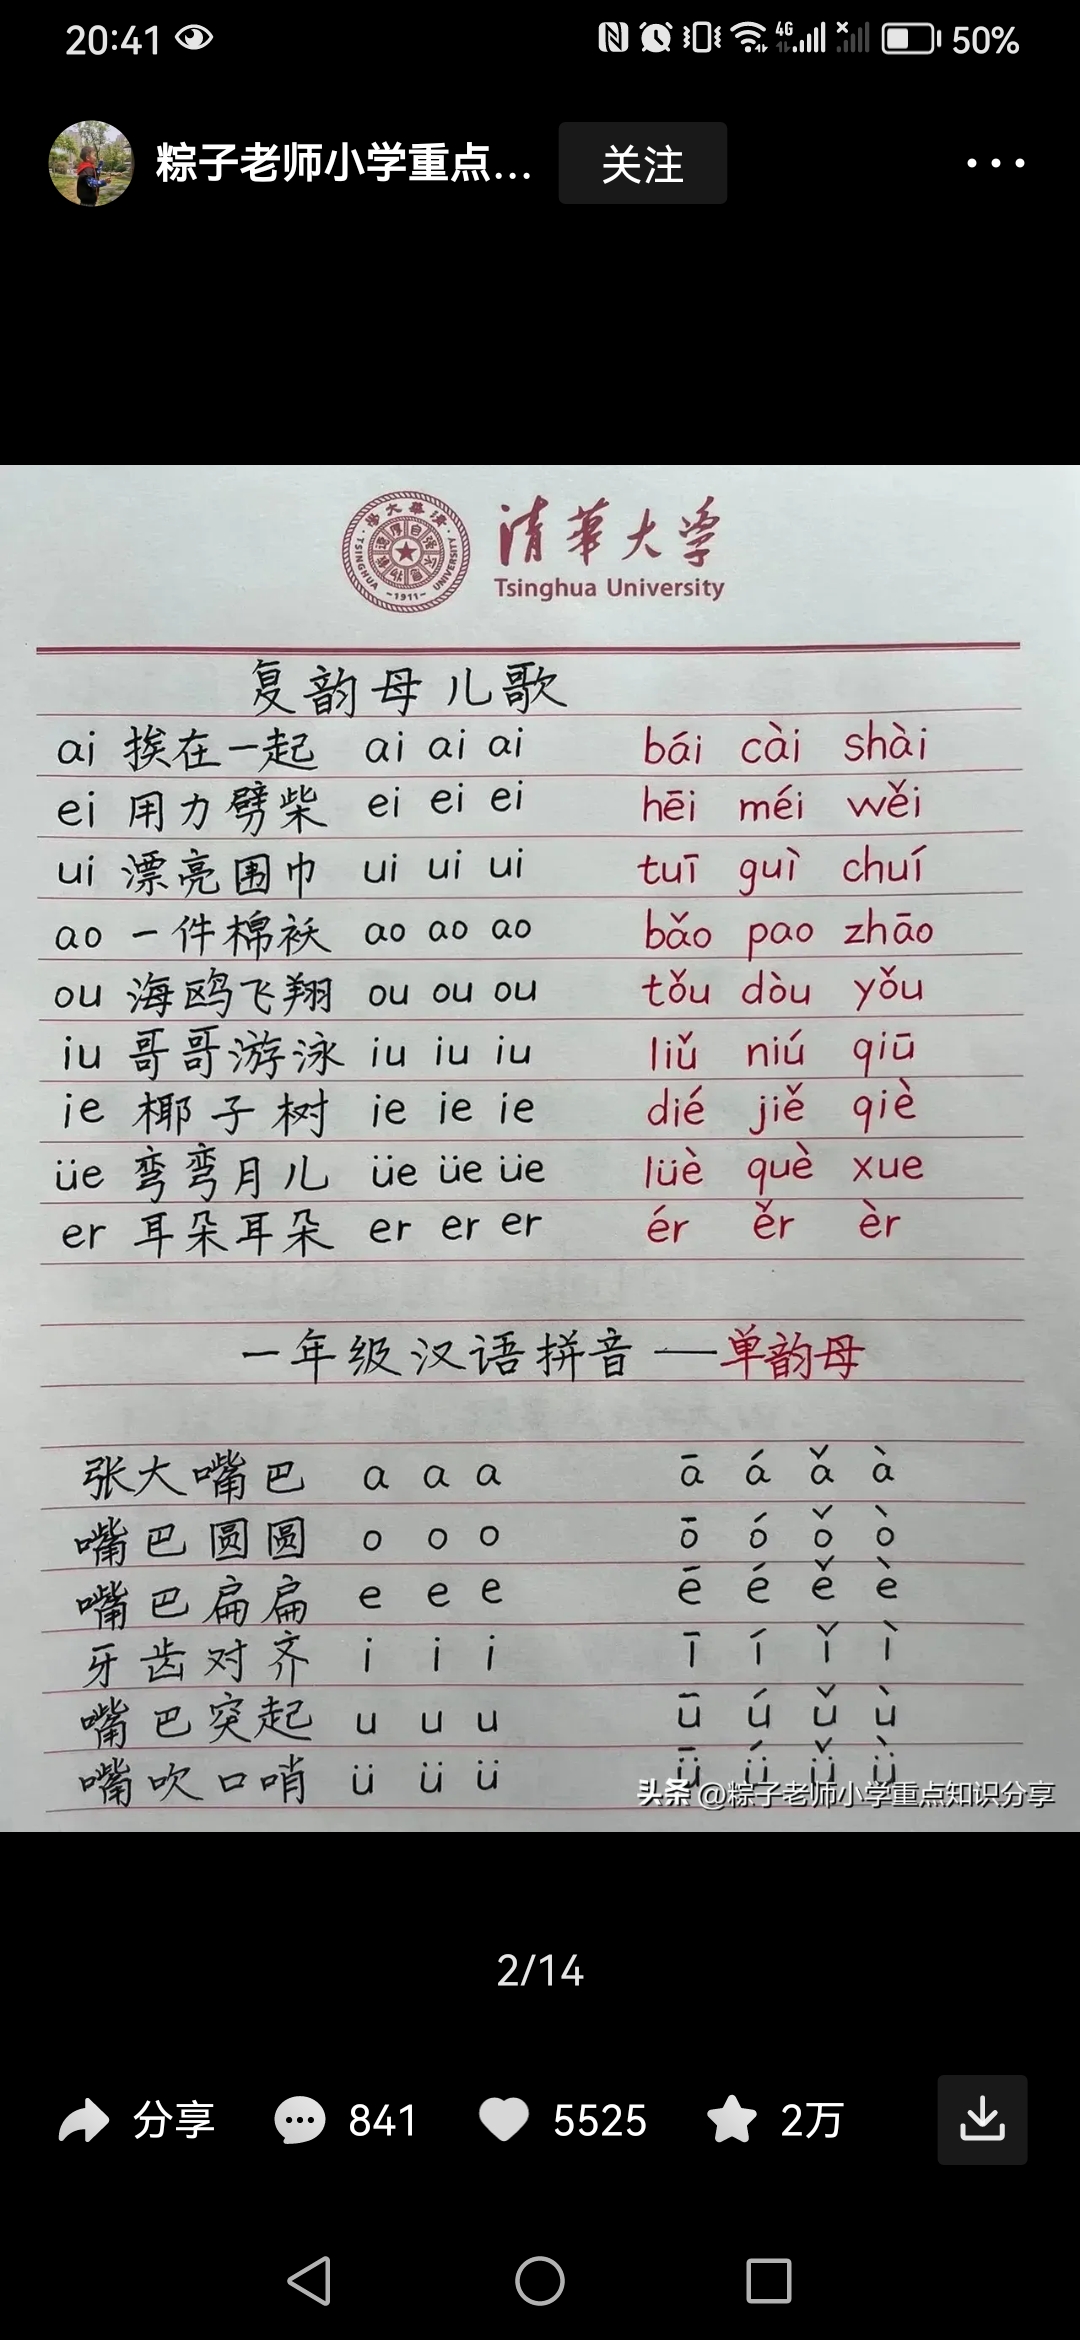 20:41 4G 50%
粽子老师小学重点... 关注
清華大学
Tsinghua University
TSINGHUA UNIVERSITY
-1911-
复韵母儿歌
ai 挨在一起 ai ai ai bái cài shài
ei 用力劈柴 ei ei ei hēi méi wěi
ui 漂亮围巾 ui ui ui tuī guì chuí
ao 一件棉袄 ao ao ao bǎo pao zhāo
ou 海鸥飞翔 ou ou ou tǒu dòu yǒu
iu 哥哥游泳 iu iu iu liǔ niú qiū
ie 椰子树 ie ie ie dié jiě qiè
üe 弯弯月儿 üe üe üe lüè què xue
er 耳朵耳朵 er er er ér ěr èr
一年级汉语拼音——单韵母
张大嘴巴 a a a ā á ǎ à
嘴巴圆圆 o o o ō ó ǒ ò
嘴巴扁扁 e e e ē é ě è
牙齿对齐 i i i ī í ǐ ì
嘴巴突起 u u u ū ú ǔ ù
嘴吹口哨 ü ü ü ǖ ǘ ǚ ǜ
头条 @粽子老师小学重点知识分享
2/14
分享 841 5525 2万